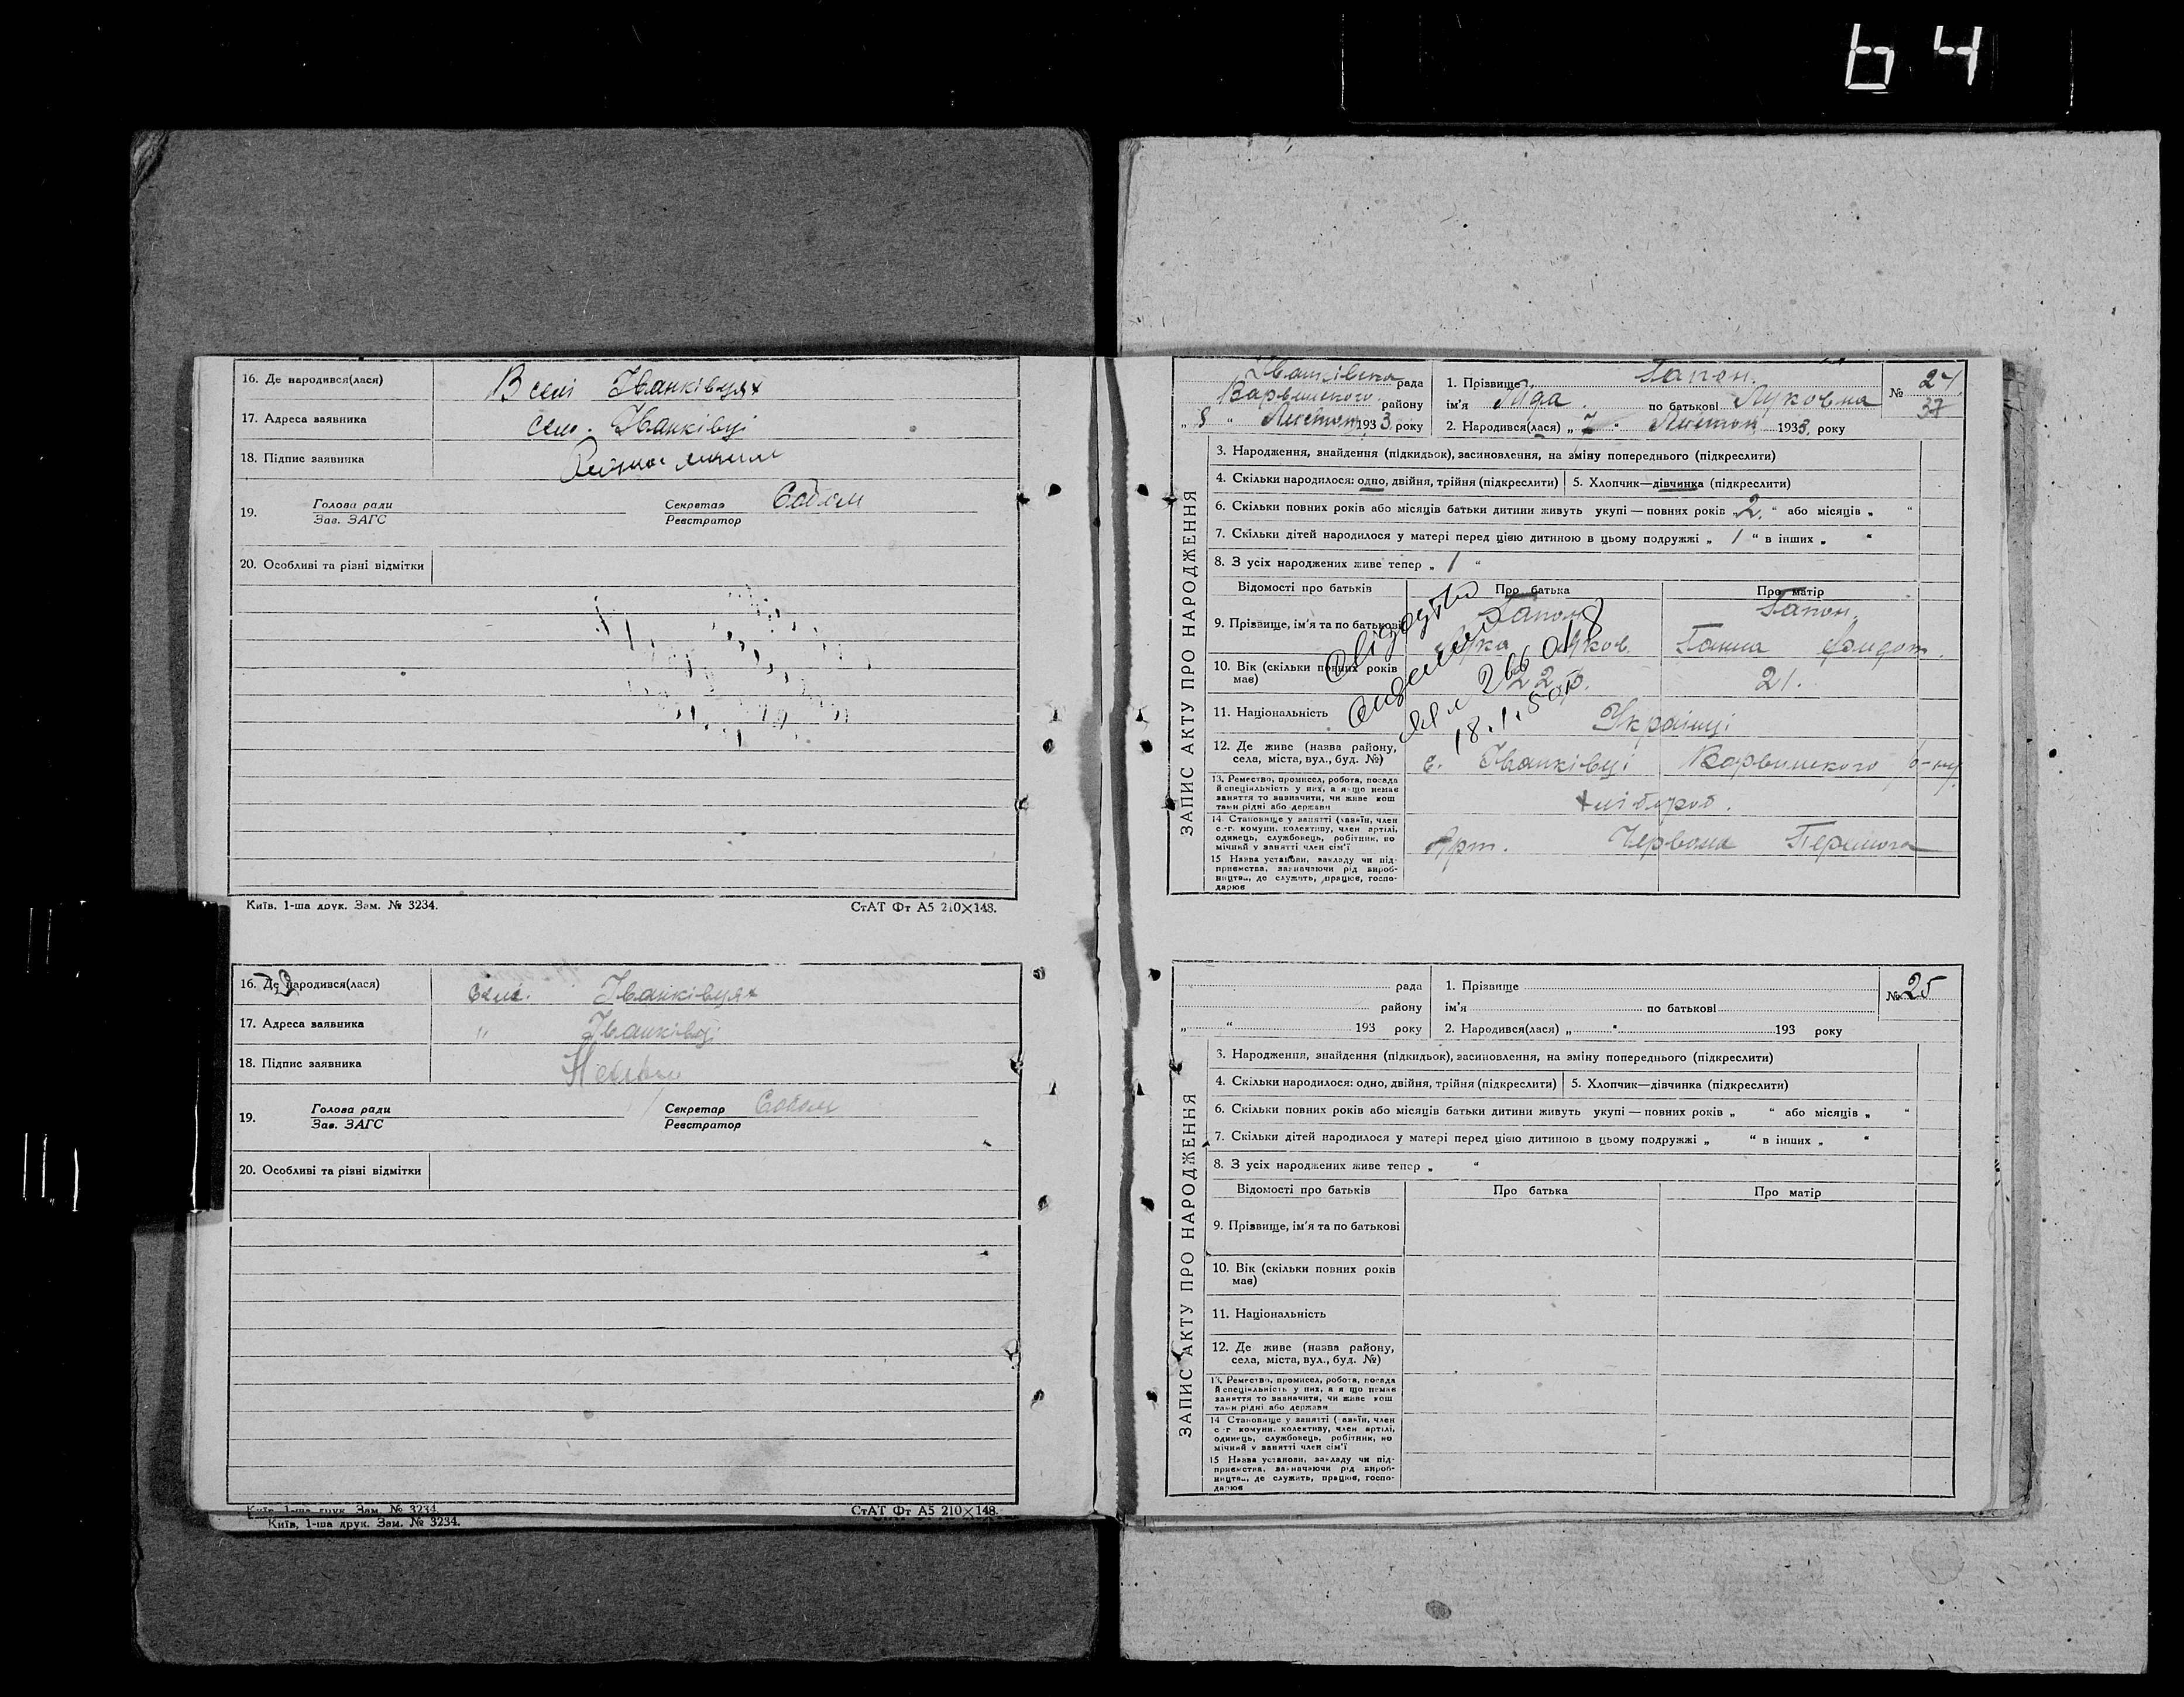 64
16. Де народився(лася) В селі Іванківцях
17. Адреса заявника село. Іванківці
18. Підпис заявника
19. Голова ради Секретар
Зав. ЗАГС Реєстратор
20. Особливі та різні відмітки
Київ, 1-ша друк. Зам. № 3234. СтАТ Фт А5 210×148.
16. Де народився(лася) В селі. Іванківцях
17. Адреса заявника " Іванківці
18. Підпис заявника
19. Голова ради Секретар
Зав. ЗАГС Реєстратор
20. Особливі та різні відмітки
Київ, 1-ша друк. Зам. № 3234. СтАТ Фт А5 210×148.
Київ, 1-ша друк. Зам. № 3234.
ЗАПИС АКТУ ПРО НАРОДЖЕННЯ
рада
Варвинського району
„ 8 “ Листоп 1933, року
1. Прізвище Гапон.
ім'я Ліда. по батькові Луковна
2. Народився(лася) „ 7. Листоп 1933, року
№ 24
37
3. Народження, знайдення (підкидьок), засиновлення, на зміну попереднього (підкреслити)
4. Скільки народилося: одно, двійня, трійня (підкреслити) 5. Хлопчик—дівчинка (підкреслити)
6. Скільки повних років або місяців батьки дитини живуть укупі — повних років „2.“ або місяців „ “
7. Скільки дітей народилося у матері перед цією дитиною в цьому подружжі „ 1 “ в інших „ “
8. З усіх народжених живе тепер „ 1 “
Відомості про батьків Про батька Про матір
9. Прізвище, ім'я та по батькові Гапон Гапон.
Лука Яков. Ганна
10. Вік (скільки повних років має) 22 р. 21.
11. Національність Українці
12. Де живе (назва району, села, міста, вул., буд. №) с. Іванківці Варвинського р-ну
13. Ремество, промисел, робота, посада й спеціяльність у них, а якщо немає заняття то зазначити, чи живе коштами рідні або держави хлібороб.
14. Становище у занятті (хазяїн, член с.-г. комуни, колективу, член артілі, одинець, службовець, робітник, помічний у занятті член сім'ї Арт. Червона Перемога
15 Назва установи, закладу чи підприємства, зазначаючи рід виробництва, де служить, працює, господарює
18.1.50р
ЗАПИС АКТУ ПРО НАРОДЖЕННЯ
рада
району
„ “ 193 року
1. Прізвище
ім'я по батькові
2. Народився(лася) „ “ 193 року
№ 25
3. Народження, знайдення (підкидьок), засиновлення, на зміну попереднього (підкреслити)
4. Скільки народилося: одно, двійня, трійня (підкреслити) 5. Хлопчик—дівчинка (підкреслити)
6. Скільки повних років або місяців батьки дитини живуть укупі — повних років „ “ або місяців „ “
7. Скільки дітей народилося у матері перед цією дитиною в цьому подружжі „ “ в інших „ “
8. З усіх народжених живе тепер „ “
Відомості про батьків Про батька Про матір
9. Прізвище, ім'я та по батькові
10. Вік (скільки повних років має)
11. Національність
12. Де живе (назва району, села, міста, вул., буд. №)
13. Ремество, промисел, робота, посада й спеціяльність у них, а якщо немає заняття то зазначити, чи живе коштами рідні або держави
14 Становище у занятті (хазяїн, член с.-г. комуни, колективу, член артілі, одинець, службовець, робітник, помічний у занятті член сім'ї
15 Назва установи, закладу чи підприємства, зазначаючи рід виробництва, де служить, працює, господарює